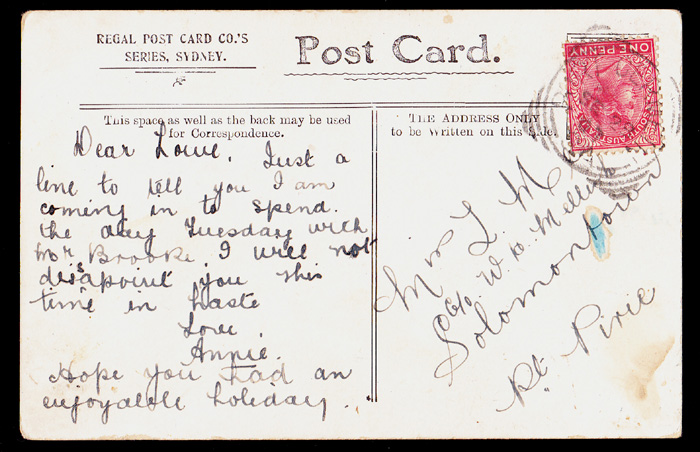 REGAL POST CARD CO.'S
SERIES, SYDNEY.
Post Card.
ONE PENNY
SOUTH AUSTRALIA
This space as well as the back may be used
for Correspondence.
THE ADDRESS ONLY
to be Written on this Side.
Dear Lowe, Just a
line to tell you I am
coming in to spend
the day Tuesday with
Mr Brooke. I will not
disapoint you this
time in haste
Love,
Annie.
Hope you had an
enjoyable holiday.
Mrs L. M
C/o. W. H.
Solomontown
Pt. Pirie